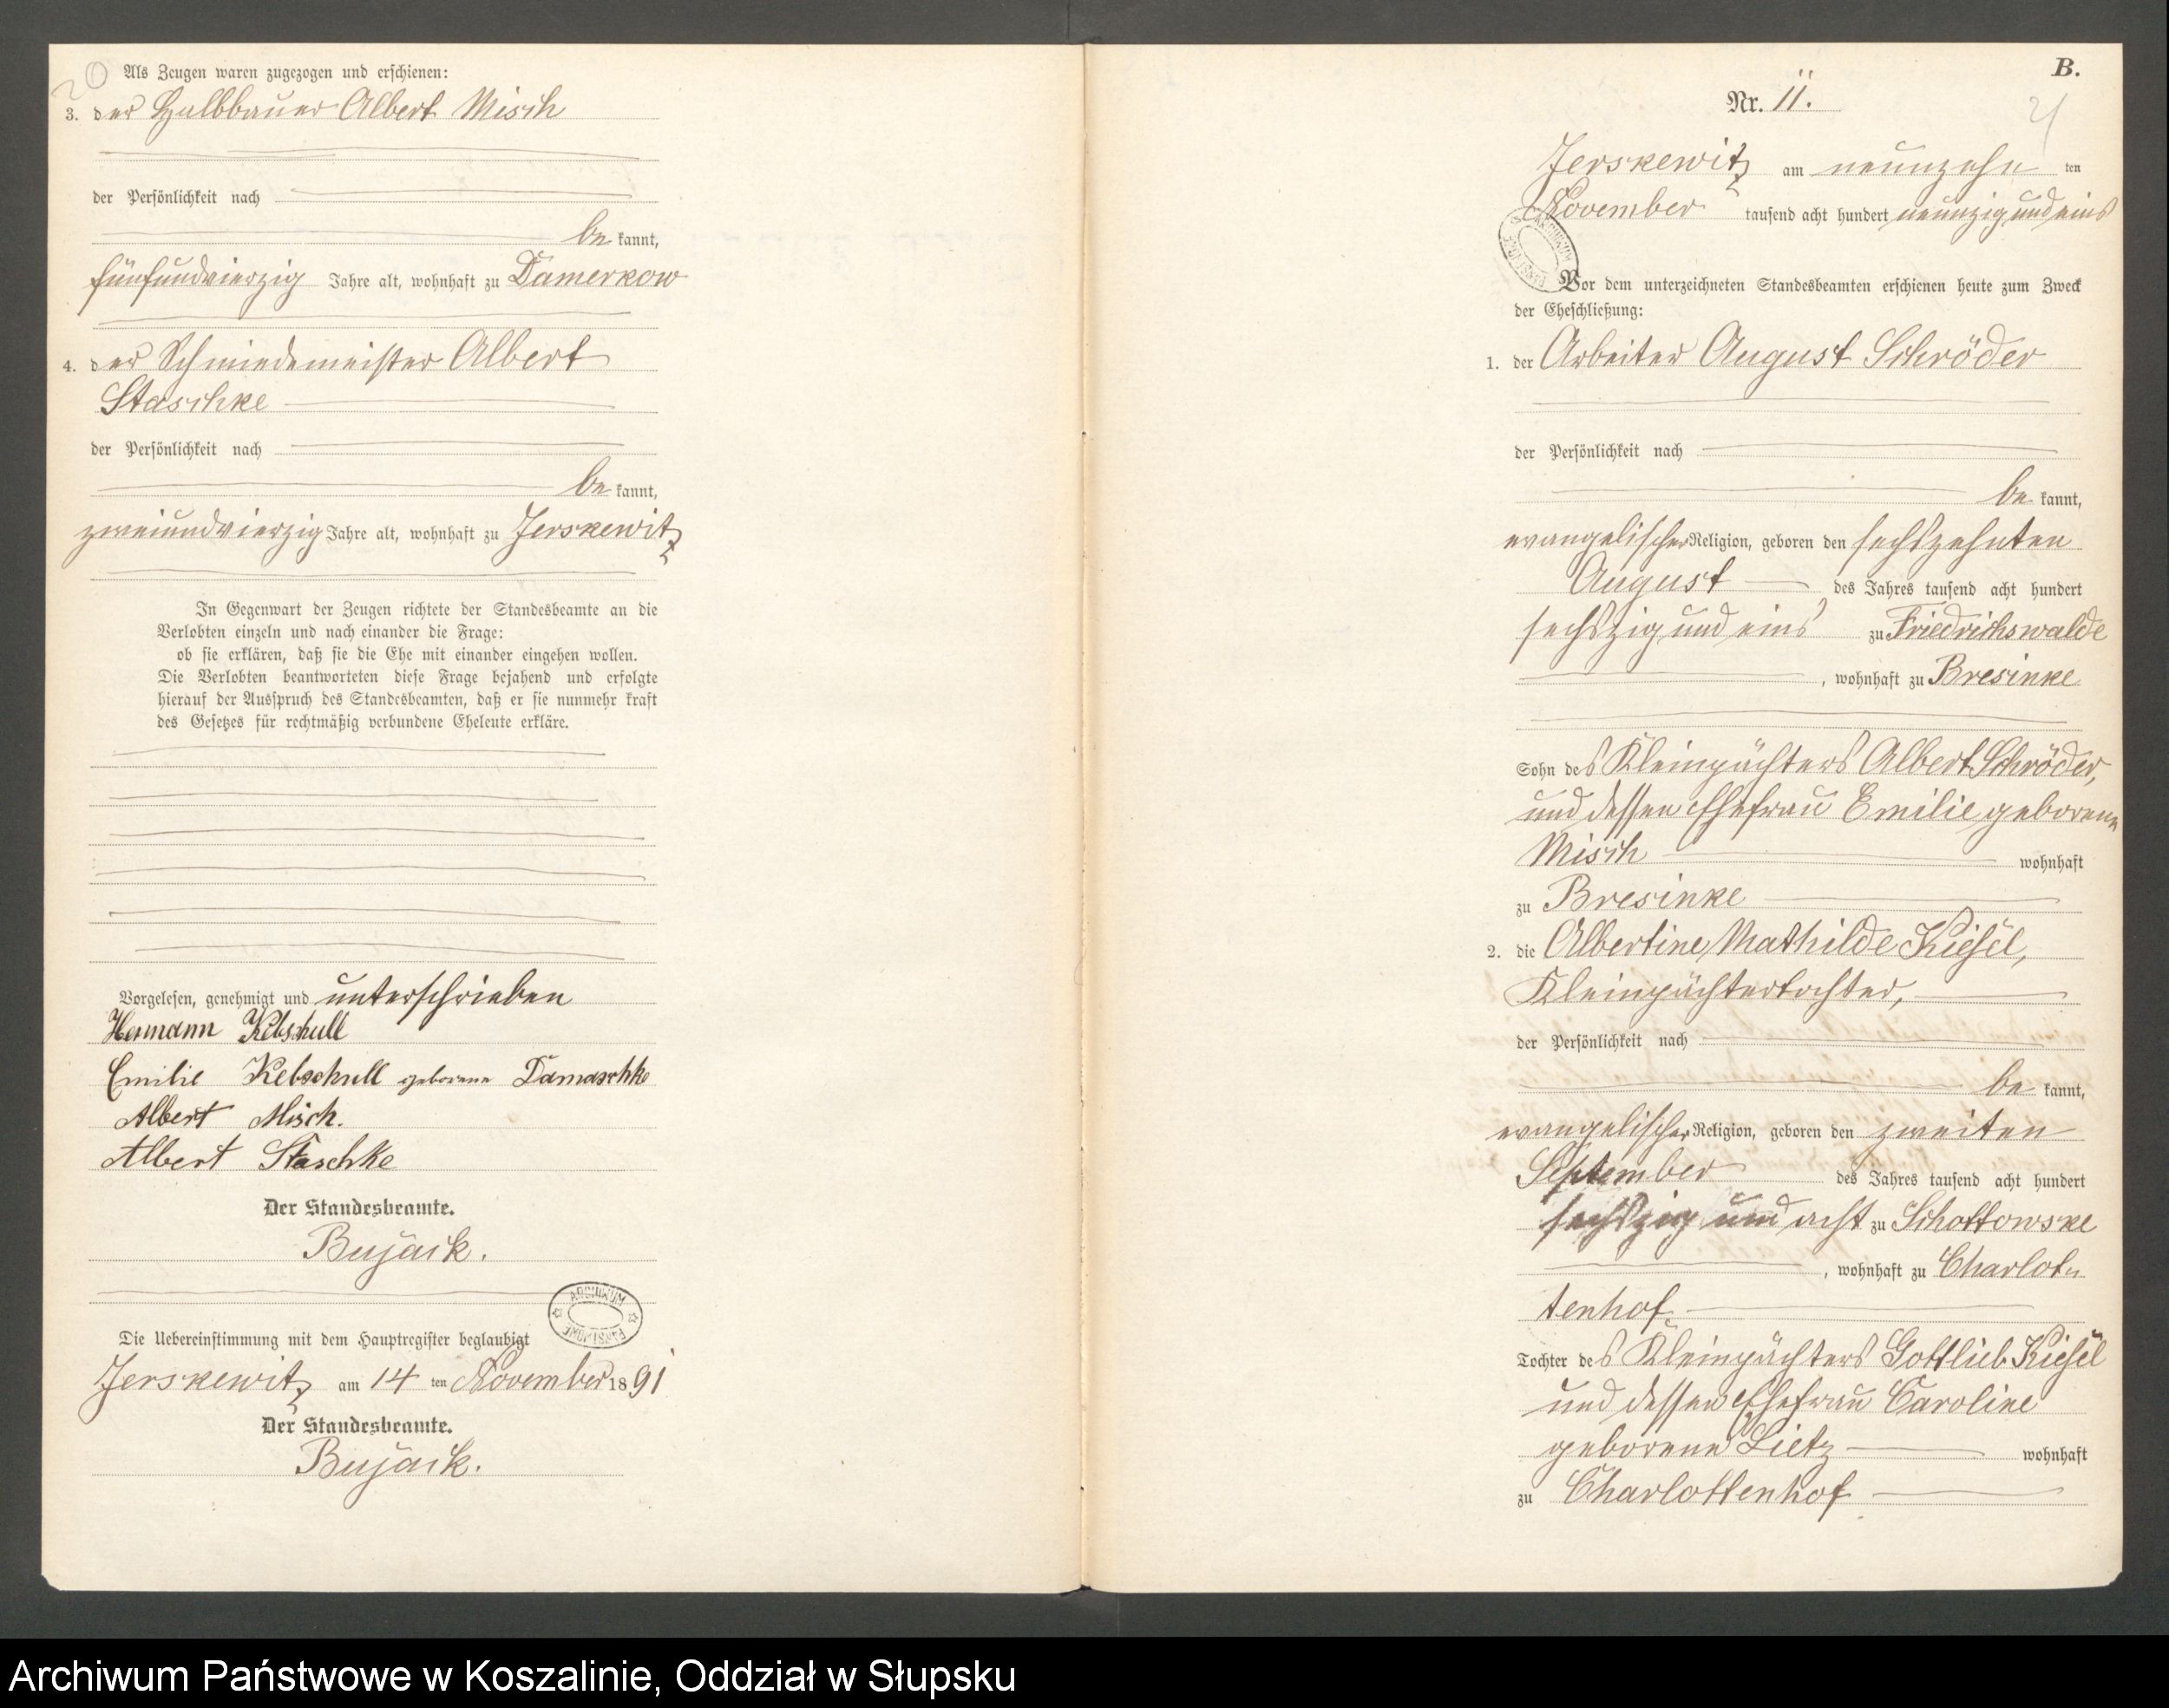 20
Als Zeugen waren zugezogen und erschienen:
3. der Halbbauer Albert Misch
der Persönlichkeit nach
be kannt,
fünfundvierzig Jahre alt, wohnhaft zu Damerkow
4. der Schmiedemeister Albert
Staschke
der Persönlichkeit nach
be kannt,
zweiundvierzig Jahre alt, wohnhaft zu Jerskewitz
In Gegenwart der Zeugen richtete der Standesbeamte an die
Verlobten einzeln und nach einander die Frage:
ob sie erklären, daß sie die Ehe mit einander eingehen wollen.
Die Verlobten beantworteten diese Frage bejahend und erfolgte
hierauf der Ausspruch des Standesbeamten, daß er sie nunmehr kraft
des Gesetzes für rechtmäßig verbundene Eheleute erkläre.
Vorgelesen, genehmigt und unterschrieben
Hermann Kebschull
Emilie Kebschull geborene Damaschke
Albert Misch.
Albert Staschke
Der Standesbeamte.
Bujack.
ARCHIWUM PAŃSTWOWE
Die Uebereinstimmung mit dem Hauptregister beglaubigt
Jerskewitz am 14 ten November 1891
Der Standesbeamte.
Bujack.
B.
Nr. 11.
21
Jerskewitz am neunzehn ten
November tausend acht hundert neunzig und eins
Vor dem unterzeichneten Standesbeamten erschienen heute zum Zweck
der Eheschließung:
1. der Arbeiter August Schröder
der Persönlichkeit nach
be kannt,
evangelischer Religion, geboren den sechszehnten
August des Jahres tausend acht hundert
sechszig und eins zu Friedrichswalde
, wohnhaft zu Bresinke
Sohn des Kleinpächters Albert Schröder,
und dessen Ehefrau Emilie geborene
Misch wohnhaft
zu Bresinke
2. die Albertine Mathilde Kiesel,
Kleinpächtertochter,
der Persönlichkeit nach
be kannt,
evangelischer Religion, geboren den zweiten
September des Jahres tausend acht hundert
sechszig und acht zu Schottowske
, wohnhaft zu Charlot-
tenhof
Tochter des Kleinpächters Gottlieb Kiesel
und dessen Ehefrau Caroline
geborene Lietz wohnhaft
zu Charlottenhof
Archiwum Państwowe w Koszalinie, Oddział w Słupsku